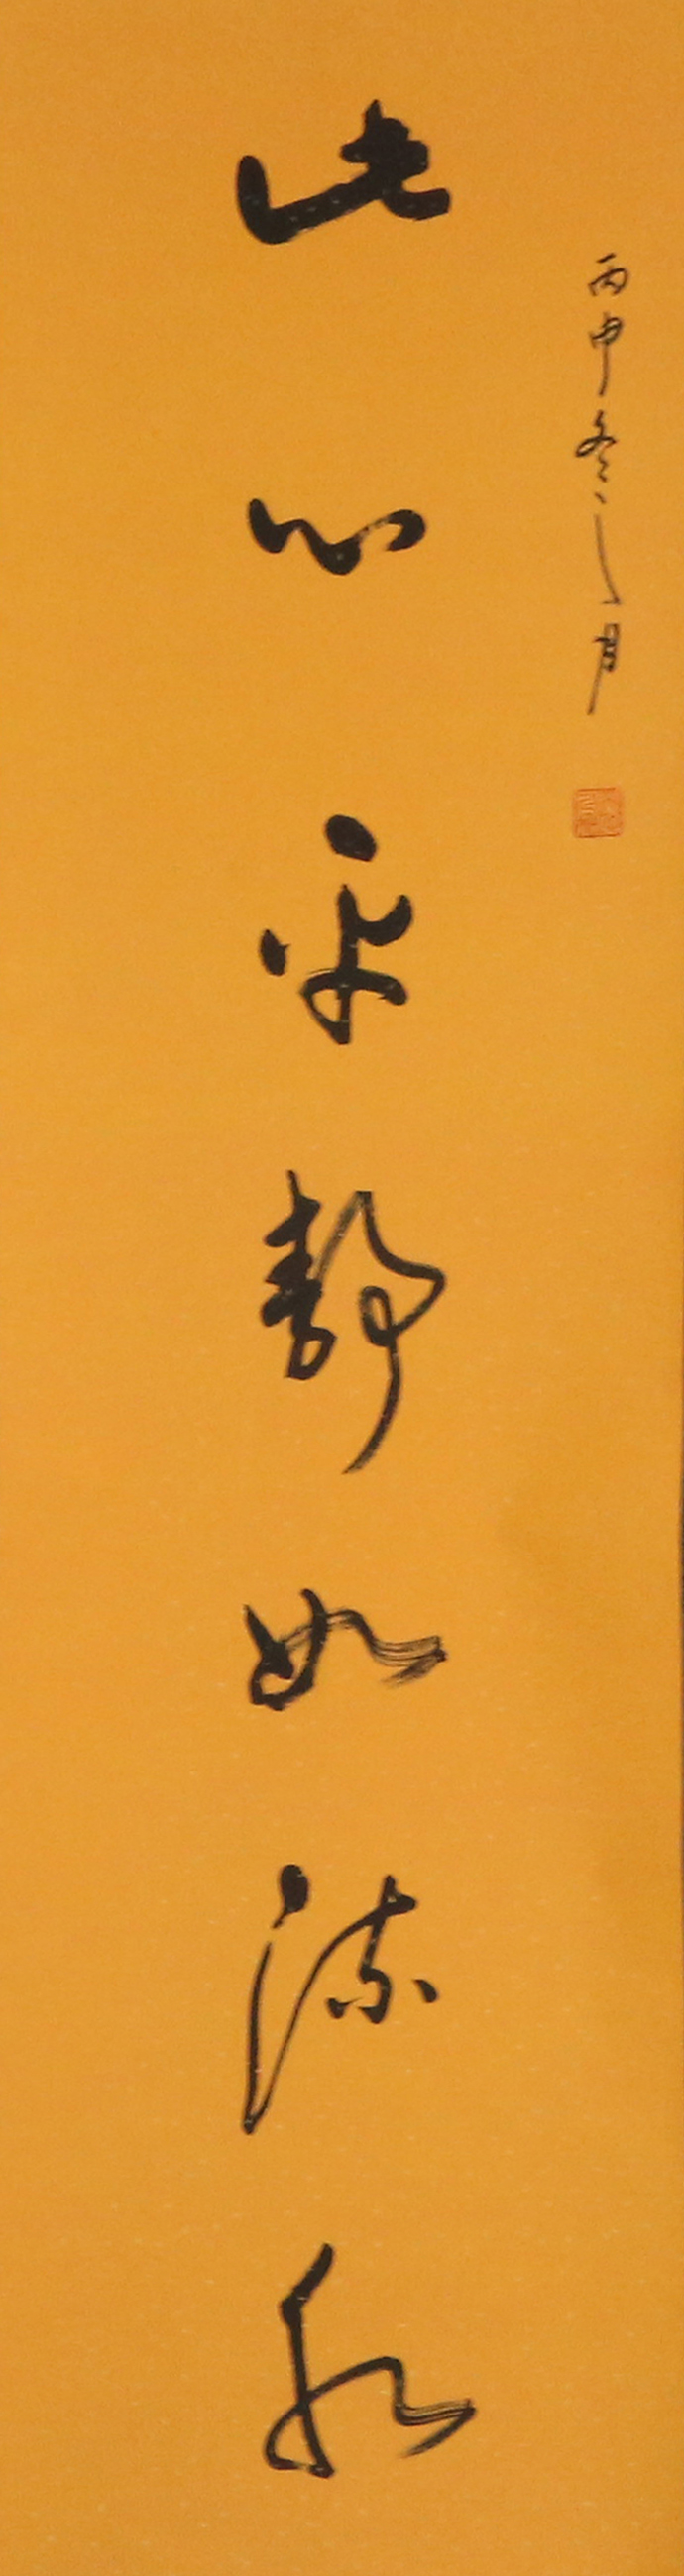 丙申冬之月
此心平静如流水